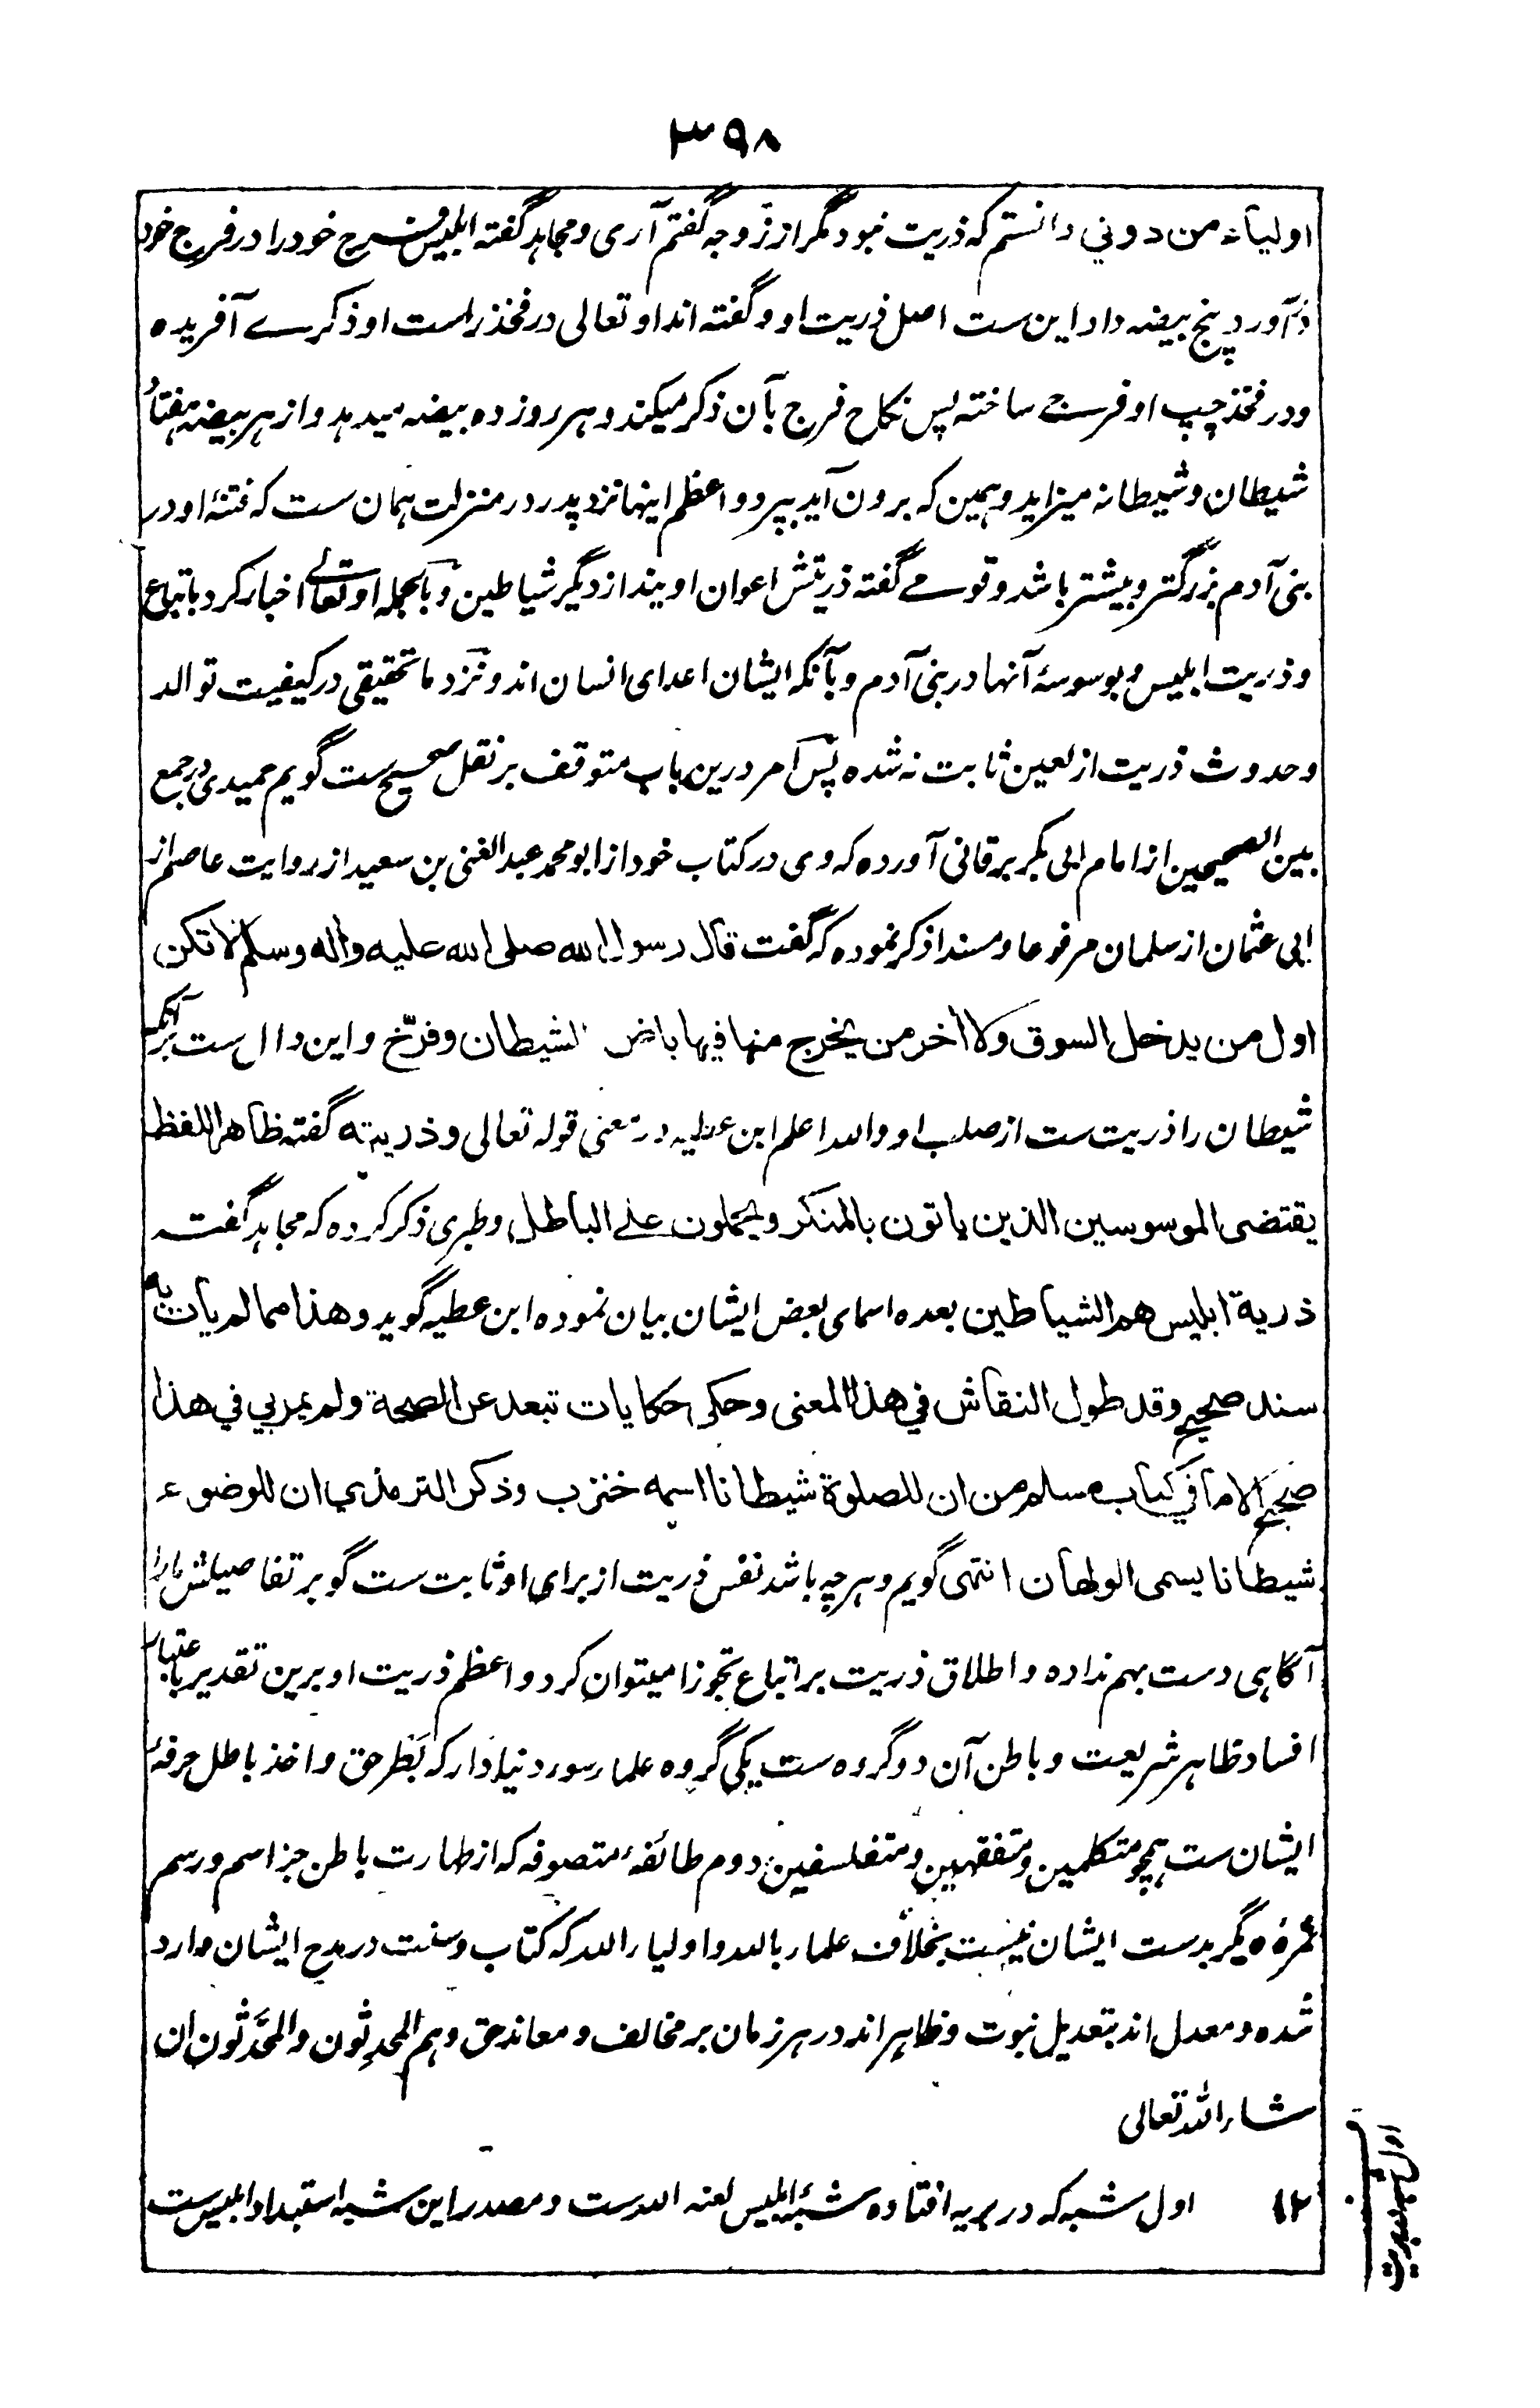 ۳۹۸
اولیاء من دوني دانستم که ذریت نبود مگر از زوجه گفتم آری و مجاهد گفته ابلیس فرج خود را در فرج خود
در آورد پنج بیضه داد این ست اصل ذریت او و گفته اند او تعالی در فخذ راست او ذکرے آفریده
و در فخذ چپ او فرجے ساخته پس نکاح فرج بآن ذکر میکند و هر روز ده بیضه میدهد و از هر بیضه هفتاد
شیطان و شیطانه میزاید و همین که برون آید بپرد و اعظم اینها نزد پدر در منزلت همان ست که فتنهٔ او در
بنی آدم بزرگتر و بیشتر باشد و قومے گفته ذریتش اعوان اویند از دیگر شیاطین و بالجمله او تعالے اخبار کرد باتباع
و ذریت ابلیس و بوسوسهٔ آنها در بنی آدم و بآنکه ایشان اعدای انسان اند و نزد ما تحقیقی در کیفیت توالد
و حدوث ذریت از لعین ثابت نه شده پس امر درین باب متوقف بر نقل صحیح ست گویم حمیدی در جمع
بین الصحیحین از امام ابی بکر برقانی آورده که وی در کتاب خود از ابو محمد عبد الغنی بن سعید از روایت عاصم از
ابی عثمان از سلمان مرفوعا و مسندا ذکر نموده که گفت قال رسول الله صلی الله علیه واله وسلم لا تکن
اول من یدخل السوق ولا اخر من یخرج منها فیها باض الشیطان وفرّخ و این دال ست بر آنکه
شیطان را ذریت ست از صلب او والله اعلم ابن عطیه در معنی قوله تعالی و ذریته گفته ظاهر اللفظ
یقتضی الموسوسین الذین یاتون بالمنکر ویحملون علے الباطل و طبری ذکر کرده که مجاهد گفته
ذریة ابلیس هم الشیاطین بعده اسمای بعض ایشان بیان نموده ابن عطیه گوید وهذا مما لم یأت به
سند صحیح وقد طول النقاش في هذا المعنی وحکی حکایات تبعد عن الصحة ولم یمر بي في هذا
صحیح الا ما في کتاب مسلم من ان للصلوة شیطانا اسمه خنزب وذکر الترمذي ان للوضوء
شیطانا یسمی الولهان انتهی گویم و هر چه باشد نفس ذریت از برای او ثابت ست گو بر تفاصیلش ما را
آگاهی دست بهم نداده و اطلاق ذریت بر اتباع تجوزا میتوان کرد و اعظم ذریت او برین تقدیر باعتبار
افساد ظاهر شریعت و باطن آن دو گروه ست یکی گروه علماء سوء دنیا دار که بطر حق و اخذ باطل حرفهٔ
ایشان ست همچو متکلمین و متفقهین و متفلسفین دوم طائفهٔ متصوفه که از طهارت باطن جز اسم و رسم
ثمرهٔ دیگر بدست ایشان نیست بخلاف علماء بالله و اولیاء الله که کتاب و سنت در مدح ایشان وارد
شده و معدل اند بتعدیل نبوت و ظاهر اند در هر زمان بر مخالف و معاند حق و هم المحدِثون والمحدَثون ان
شاء الله تعالی
۱۲ اول شبه که در بریه افتاده شبهٔ ابلیس لعنه الله ست و مصدر این شبه استبداد ابلیس ست